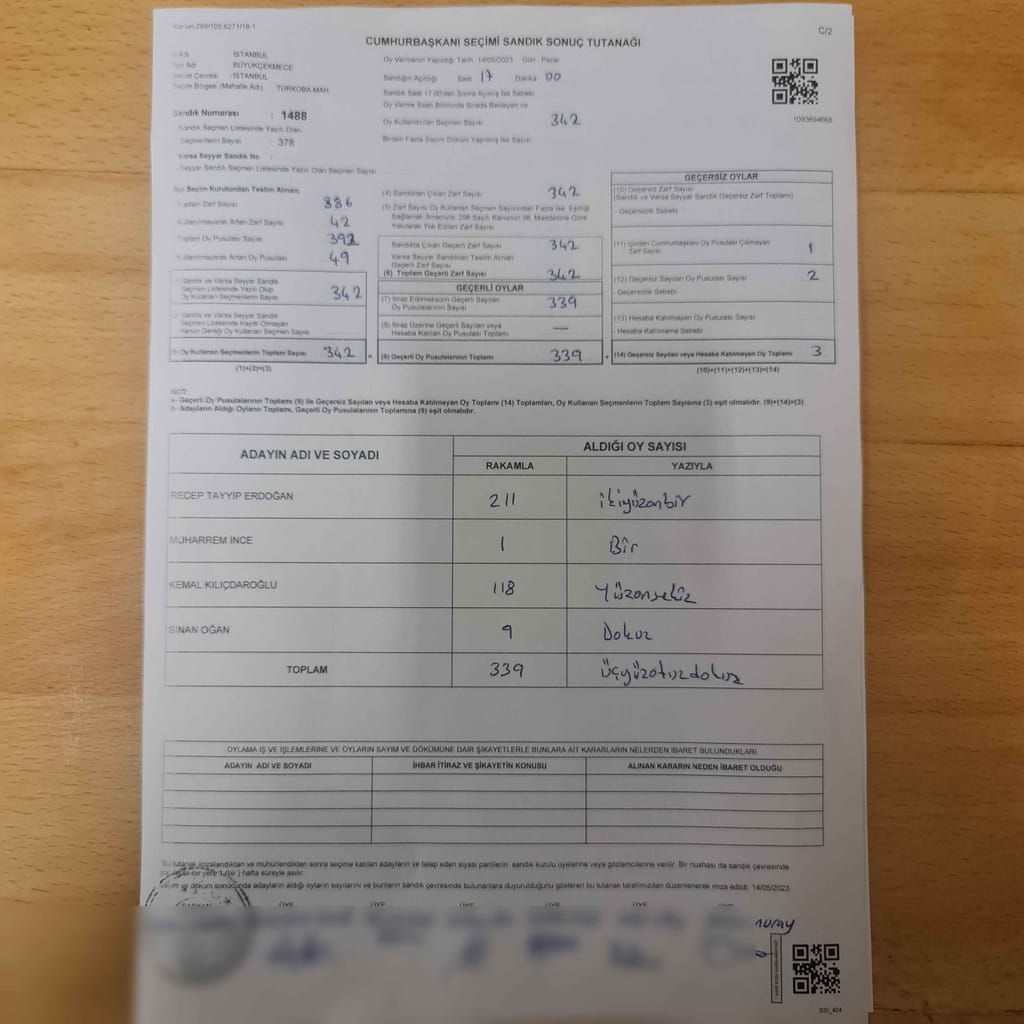 Kanun 298/105 6271/18-1
C/2
CUMHURBAŞKANI SEÇİMİ SANDIK SONUÇ TUTANAĞI
İl Adı İSTANBUL
İlçe Adı BÜYÜKÇEKMECE
Seçim Çevresi : İSTANBUL
Seçim Bölgesi (Mahalle Adı) TÜRKOBA MAH.
Sandık Numarası : 1488
Sandık Seçmen Listesinde Yazılı Olan
Seçmenlerin Sayısı : 378
Varsa Seyyar Sandık No :
Seyyar Sandık Seçmen Listesinde Yazılı Olan Seçmen Sayısı
Oy Vermenin Yapıldığı Tarih 14/05/2023 Gün Pazar
Sandığın Açıldığı Saat 17 Dakika 00
Sandık Saat 17.00'den Sonra Açılmış İse Sebebi
Oy Verme Saati Bitiminde Sırada Bekleyen ve
Oy Kullandırılan Seçmen Sayısı 342
Birden Fazla Sayım Döküm Yapılmış İse Sayısı
1093694668
İlçe Seçim Kurulundan Teslim Alınan;
Toplam Zarf Sayısı 886
Kullanılmayarak Artan Zarf Sayısı 42
Toplam Oy Pusulası Sayısı 392
Kullanılmayarak Artan Oy Pusulası 49
(1) Sandık ve Varsa Seyyar Sandık
Seçmen Listesinde Yazılı Olup
Oy Kullanan Seçmenlerin Sayısı 342
(2) Sandık ve Varsa Seyyar Sandık
Seçmen Listesinde Kayıtlı Olmayan
Kanun Gereği Oy Kullanan Seçmen Sayısı
(3) Oy Kullanan Seçmenlerin Toplam Sayısı 342
(1)+(2)=(3)
(4) Sandıktan Çıkan Zarf Sayısı 342
(5) Zarf Sayısı Oy Kullanan Seçmen Sayısından Fazla İse, Eşitliği
Sağlamak Amacıyla; 298 Sayılı Kanunun 98. Maddesine Göre
Yakılarak Yok Edilen Zarf Sayısı
Sandıkta Çıkan Geçerli Zarf Sayısı 342
Varsa Seyyar Sandıktan Teslim Alınan
Geçerli Zarf Sayısı
(6) Toplam Geçerli Zarf Sayısı 342
GEÇERLİ OYLAR
(7) İtiraz Edilmeksizin Geçerli Sayılan
Oy Pusulalarının Sayısı 339
(8) İtiraz Üzerine Geçerli Sayılan veya
Hesaba Katılan Oy Pusulası Toplamı —
(9) Geçerli Oy Pusulalarının Toplamı 339
GEÇERSİZ OYLAR
(10) Geçersiz Zarf Sayısı
(Sandık ve Varsa Seyyar Sandık Geçersiz Zarf Toplamı)
- Geçersizlik Sebebi
(11) İçinden Cumhurbaşkanı Oy Pusulası Çıkmayan
Zarf Sayısı 1
(12) Geçersiz Sayılan Oy Pusulası Sayısı 2
- Geçersizlik Sebebi
(13) Hesaba Katılmayan Oy Pusulası Sayısı
- Hesaba Katılmama Sebebi
(14) Geçersiz Sayılan veya Hesaba Katılmayan Oy Toplamı 3
(10)+(11)+(12)+(13)=(14)
NOT:
a- Geçerli Oy Pusulalarının Toplamı (9) ile Geçersiz Sayılan veya Hesaba Katılmayan Oy Toplamı (14) Toplamları, Oy Kullanan Seçmenlerin Toplam Sayısına (3) eşit olmalıdır. (9)+(14)=(3)
b- Adayların Aldığı Oyların Toplamı, Geçerli Oy Pusulalarının Toplamına (9) eşit olmalıdır.
ADAYIN ADI VE SOYADI ALDIĞI OY SAYISI
RAKAMLA YAZIYLA
RECEP TAYYİP ERDOĞAN 211 ikiyüzonbir
MUHARREM İNCE 1 Bir
KEMAL KILIÇDAROĞLU 118 Yüzonsekiz
SİNAN OĞAN 9 Dokuz
TOPLAM 339 üçyüzotuzdokuz
OYLAMA İŞ VE İŞLEMLERİNE VE OYLARIN SAYIM VE DÖKÜMÜNE DAİR ŞİKAYETLERLE BUNLARA AİT KARARLARIN NELERDEN İBARET BULUNDUKLARI
ADAYIN ADI VE SOYADI İHBAR İTİRAZ VE ŞİKAYETİN KONUSU ALINAN KARARIN NEDEN İBARET OLDUĞU
Bu tutanak imzalandıktan ve mühürlendikten sonra seçime katılan adayların ve talep eden siyasi partilerin, sandık kurulu üyelerine veya gözlemcilerine verilir. Bir nüshası da sandık çevresinde
bir yere 1 (bir) hafta süreyle asılır.
Sayım ve döküm sonucunda adayların aldığı oyların sayılarını ve bunların sandık çevresinde bulunanlara duyurulduğunu gösteren bu tutanak tarafımızdan düzenlenerek imza edildi. 14/05/2023
BAŞKAN ÜYE ÜYE ÜYE ÜYE ÜYE ÜYE
nuray